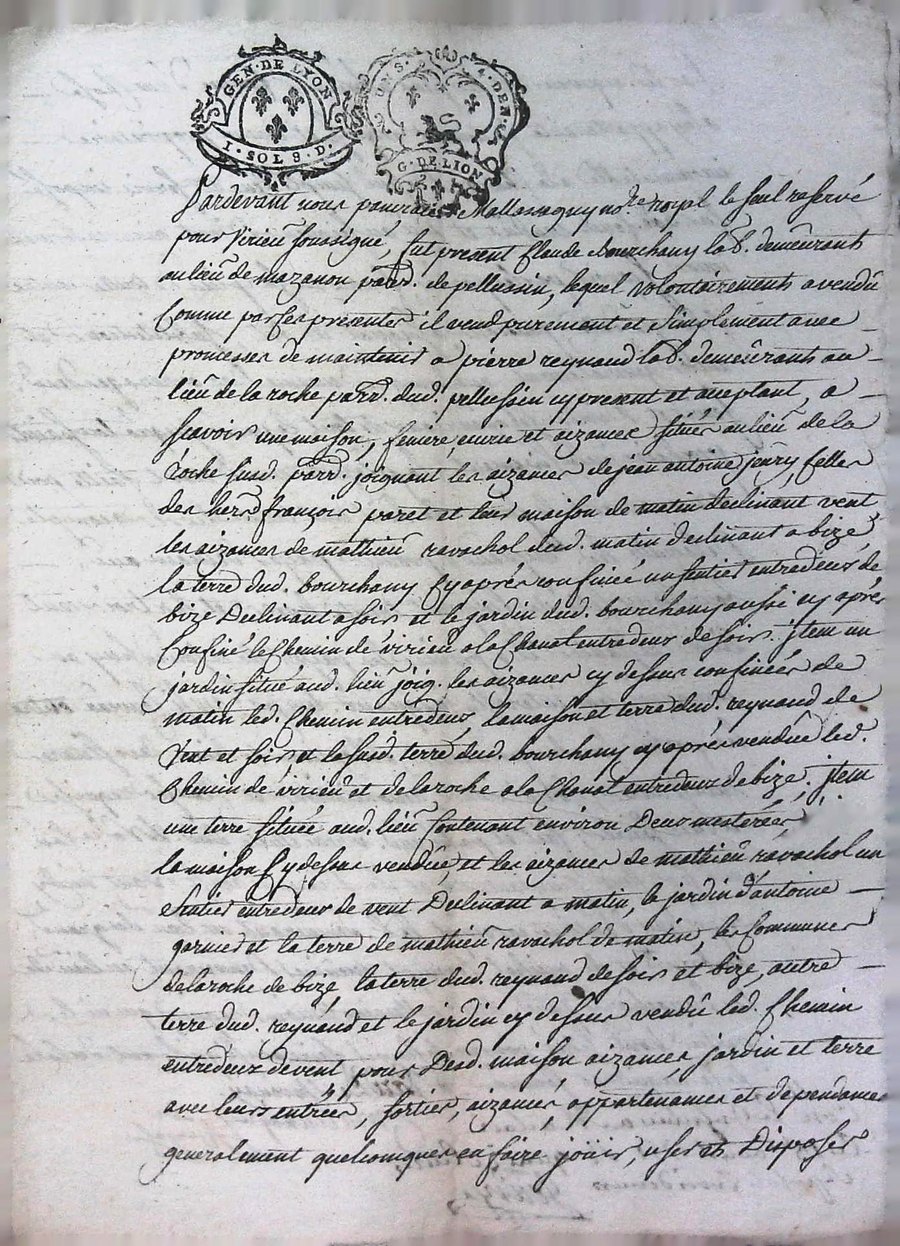 GEN · DE LYON
I · SOL 8 · D ·
G · DE LION
Pardevant nous Mallassagny no.re royal le seul reservé
pour Virieu soussigné, fut present Claude Bourchany lab. demeurant
au lieu de mazanon parr. de pellussin, lequel volontairements a vendû
comme par ses presentes il vend purement et simplement avec
promesses de maintenir a pierre reynaud lab. demeurants au
lieu de la roche parr. dud. pellussin cy present et aceptant, a
scavoir une maison, et aizances situés au lieu de la
roche susd. parr. joignant les aizances de jean antoine celles
des hers. françois paret et leur maison de matin declinant vent
les aizances de mathieu ravachol dud. matin declinant a bize
la terre dud. bourchany cy après confinée un sentier entredeux de
bize declinant a soir et le jardin dud. bourchany aussi cy après
confiné le chemin de virieu a la Chanat entredeux de soir. jtem un
jardin situé aud. lieu joig. les aizances cy dessus confinées de
matin led. chemin entredeux, la maison et terre dud. reynaud de
vent et soir et la susd. terre dud. bourchany cy après vendûe led.
chemin de virieu et de la roche a la Chanat entredeux de bize, jtem
une terre située aud. lieu contenant environ deux mesterées
la maison cy dessus vendûe, et les aizances de mathieu ravachol un
sentier entredeux de vent declinant a matin, le jardin d'antoine
garnier et la terre de mathieu ravachol de matin, les communes
de la roche de bize, la terre dud. reynaud de soir et bize, autre
terre dud. reynaud et le jardin cy dessus vendû led. chemin
entredeux de vent pour desd. maison aizances, jardin et terre
avec leurs entrées, sorties, aizances, appartenances et dependances
generalement quelconques en faire joüir, user et disposer